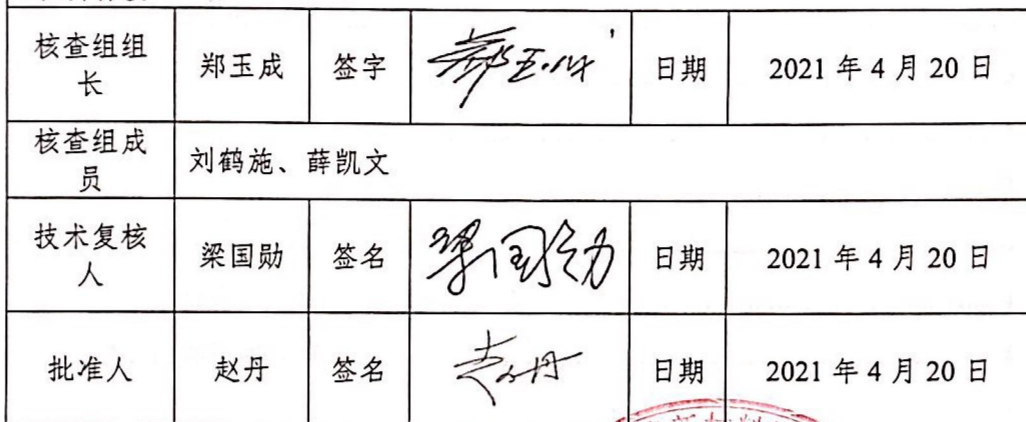 核查组组长 郑玉成 签字 郑玉成 日期 2021 年 4 月 20 日
核查组成员 刘鹤施、薛凯文
技术复核人 梁国勋 签名 梁国勋 日期 2021 年 4 月 20 日
批准人 赵丹 签名 赵丹 日期 2021 年 4 月 20 日